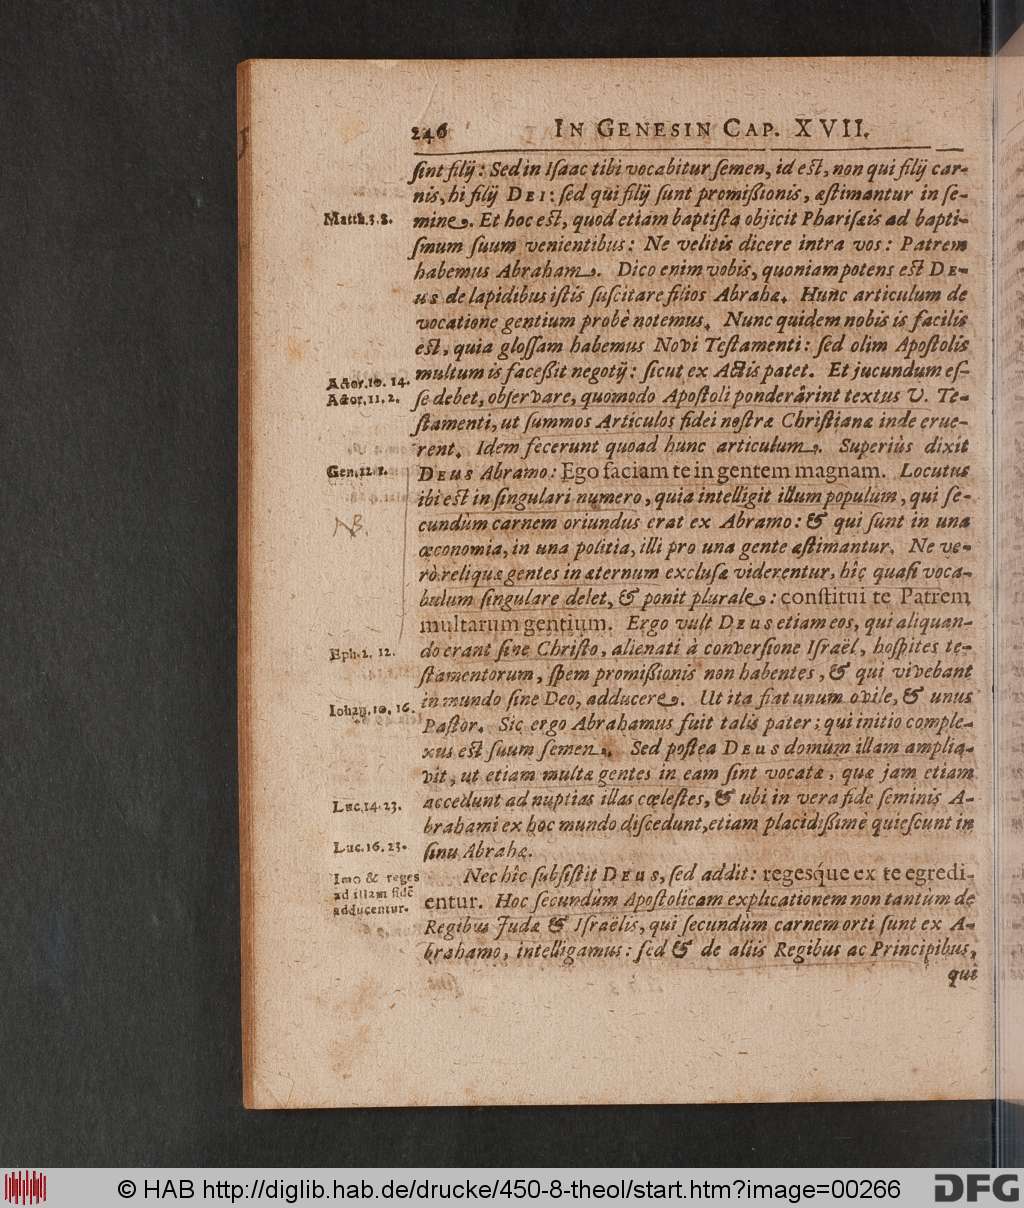 246
IN GENESIN CAP. XVII.
ſint filij: Sed in Iſaac tibi vocabitur ſemen, id eſt, non qui filij car-
nis, hi filij DEI: ſed qui filij ſunt promiſſionis, æſtimantur in ſe-
Matth.3.8.
mine. Et hoc eſt, quod etiam baptiſta objicit Phariſæis ad bapti-
ſmum ſuum venientibus: Ne velitis dicere intra vos: Patrem
habemus Abraham. Dico enim vobis, quoniam potens eſt DE-
US de lapidibus iſtis ſuſcitare filios Abrahæ. Hunc articulum de
vocatione gentium probè notemus. Nunc quidem nobis is facilis
eſt, quia gloſſam habemus Novi Teſtamenti: ſed olim Apoſtolis
Actor.10. 14.
multum is faceßit negotij: ſicut ex Actis patet. Et jucundum eſ-
Actor.11.2.
ſe debet, obſervare, quomodo Apoſtoli ponderârint textus V. Te-
ſtamenti, ut ſummos Articulos fidei noſtræ Chriſtianæ inde erue-
rent. Idem fecerunt quoad hunc articulum. Superiùs dixit
Gen.12.2.
DEUS Abramo: Ego faciam te in gentem magnam. Locutus
ibi eſt in ſingulari numero, quia intelligit illum populum, qui ſe-
NB.
cundùm carnem oriundus erat ex Abramo: & qui ſunt in una
œconomia, in una politia, illi pro una gente æſtimantur. Ne ve-
rò reliquæ gentes in æternum excluſæ viderentur, hîc quaſi voca-
bulum ſingulare delet, & ponit plurale: conſtitui te Patrem
multarum gentium. Ergo vult DEUS etiam eos, qui aliquan-
Eph.2. 12.
do erant ſine Chriſto, alienati à converſione Iſraël, hoſpites te-
ſtamentorum, ſpem promiſſionis non habentes, & qui vivebant
in mundo ſine Deo, adducere. Ut ita fiat unum ovile, & unus
Iohan.10. 16.
Paſtor. Sic ergo Abrahamus fuit talis pater; qui initio comple-
xus eſt ſuum ſemen. Sed poſtea DEUS domum illam amplia-
vit, ut etiam multæ gentes in eam ſint vocatæ, quæ jam etiam
Luc.14.23.
accedunt ad nuptias illas cœleſtes, & ubi in vera fide ſeminis A-
brahami ex hoc mundo diſcedunt, etiam placidißimè quieſcunt in
Luc.16.23.
ſinu Abrahæ.
Imo & reges
ad illam fidē
adducentur.
Nec hîc ſubſiſtit DEUS, ſed addit: regesq́ue ex te egredi-
entur. Hoc ſecundùm Apoſtolicam explicationem non tantùm de
Regibus Judæ & Iſraëlis, qui ſecundùm carnem orti ſunt ex A-
brahamo, intelligamus: ſed & de aliis Regibus ac Principibus,
qui
© HAB http://diglib.hab.de/drucke/450-8-theol/start.htm?image=00266
DFG